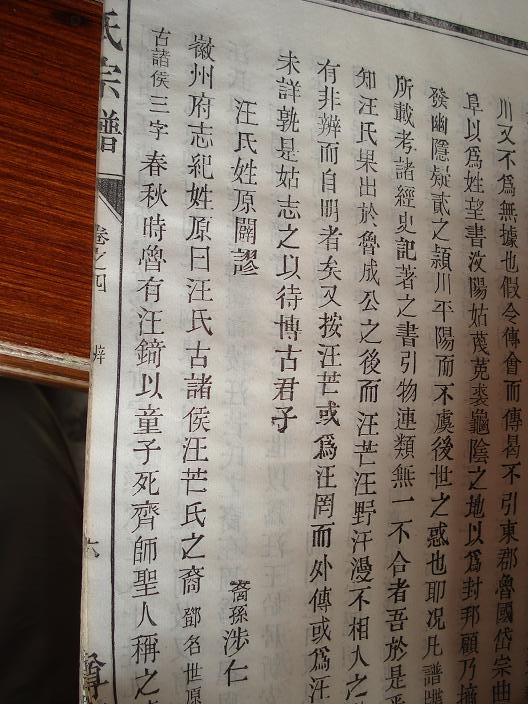 川又不爲無據也假令傳會而傳曷不引東郡魯國岱宗曲
阜以爲姓望書汶陽姑蔑菟裘龜陰之地以爲封邦顧乃
發幽隱疑貳之潁川平陽而不虞後世之惑也耶况凡譜
所載考諸經史記著之書引物連類無一不合者吾於是
知汪氏果出於魯成公之後而汪芒汪野汗漫不相入之
有非辨而自明者矣又按汪芒或爲汪罔而外傳或爲汪
未詳孰是姑志之以待博古君子
汪氏姓原闢謬
裔孫涉仁
徽州府志紀姓原曰汪氏古諸侯汪芒氏之裔鄧名世原
古諸侯三字春秋時魯有汪錡以童子死齊師聖人稱之
氏宗譜
卷之四
辨
六